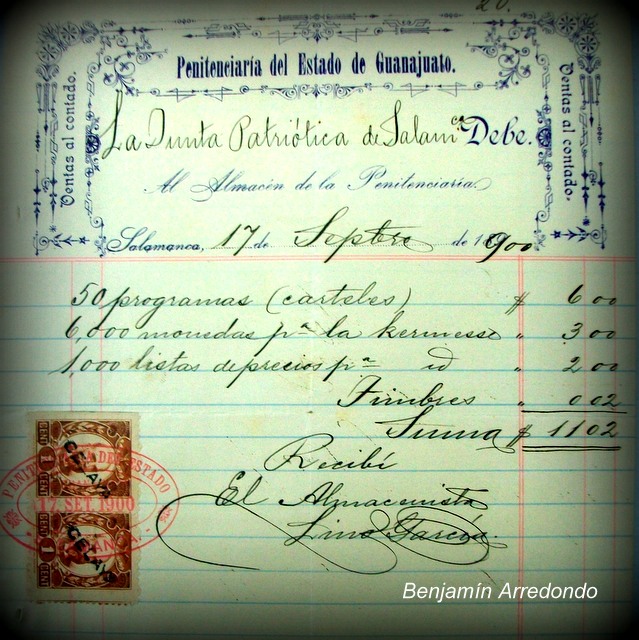 20.
Penitenciaría del Estado de Guanajuato.
Ventas al contado.
Ventas al contado.
La Junta Patriótica de Salamca Debe.
Al Almacén de la Penitenciaría.
Salamanca, 17 de Septbre de 1900
50 programas (carteles) $ 6 00
6,000 monedas pa la kermesse " 3 00
1,000 listas de precios pa id " 2 00
Timbres " 0 02
Suma $ 11 02
Recibí
El Almacenista
Lino García.
PENITENCIARIA DEL ESTADO
17. SET. 1900
SALAMANCA.
CELAYA
CELAYA
1 CENT 1
1 CENT 1
Benjamín Arredondo